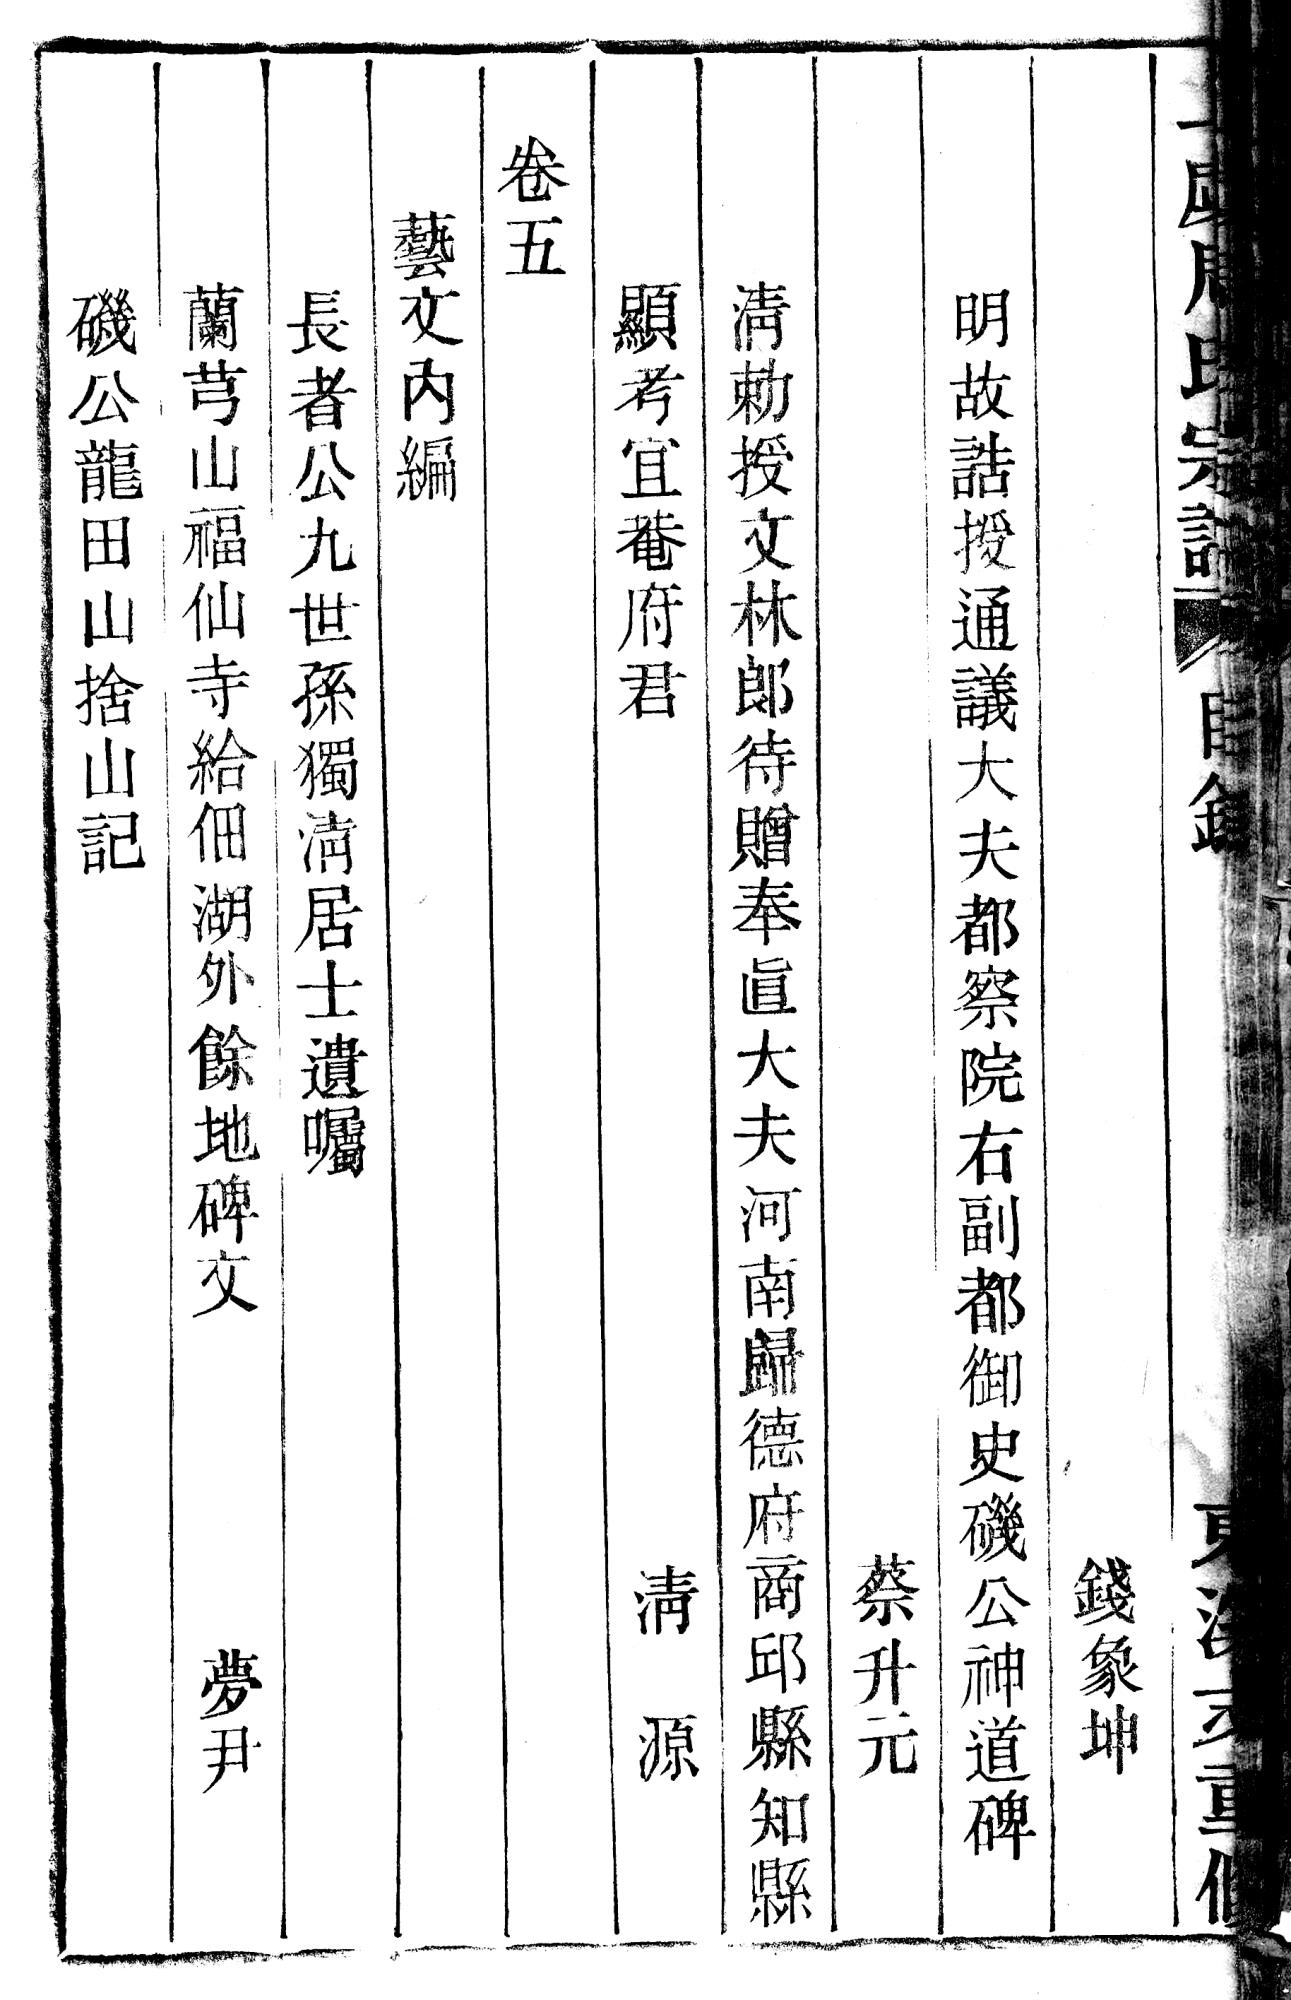 周氏宗譜 目錄
錢象坤
明故誥授通議大夫都察院右副都御史磯公神道碑
蔡升元
淸勅授文林郎待贈奉直大夫河南歸德府商邱縣知縣
顯考宜菴府君 淸源
卷五
藝文內編
長者公九世孫獨淸居士遺囑
蘭芎山福仙寺給佃湖外餘地碑文 夢尹
磯公龍田山捨山記